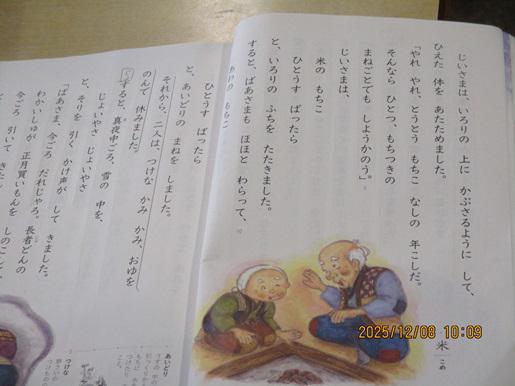 じいさまは、いろりの 上に かぶさるように して、
ひえた 体を あたためました。
「やれ やれ、とうとう もちこ なしの 年こしだ。
そんなら ひとつ、もちつきの
まねごとでも しようかのう。」
じいさまは、
米の もちこ
ひとうす ばったら
と、いろりの ふちを たたきました。
すると、ばあさまも ほほと わらって、
あわの もちこ
ひとうす ばったら
と、あいどりの まねを しました。
それから、二人は、つけな かみ かみ、おゆを
のんで 休みました。
すると、真夜中ごろ、雪の 中を、
じょいやさ じょいやさ
と、そりを 引く かけ声が して きました。
「ばあさま、今ごろ だれじゃろ。長者どんの
わかいしゅが 正月買いもんを しのこして、
今ごろ 引いて きたん
米 こめ
あいどり
つけな
2025/12/08 10:09